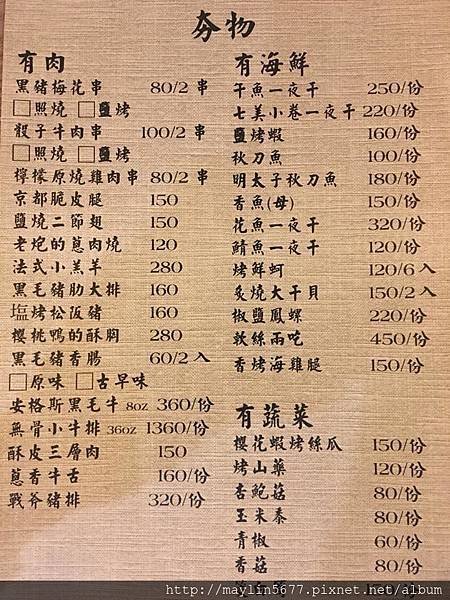 夯物
有肉
黑豬梅花串 80/2 串
□照燒 □鹽烤
骰子牛肉串 100/2 串
□照燒 □鹽烤
檸檬原燒雞肉串 80/2 串
京都脆皮腿 150
鹽燒二節翅 150
老炮的蔥肉燒 120
法式小羔羊 280
黑毛豬肋大排 160
塩烤松阪豬 160
櫻桃鴨的酥胸 280
黑毛豬香腸 60/2 入
□原味 □古早味
安格斯黑毛牛 8oz 360/份
無骨小牛排 36oz 1360/份
酥皮三層肉 150
蔥香牛舌 160/份
戰斧豬排 320/份
有海鮮
午魚一夜干 250/份
七美小卷一夜干 220/份
鹽烤蝦 160/份
秋刀魚 100/份
明太子秋刀魚 180/份
香魚(母) 150/份
花魚一夜干 320/份
鯖魚一夜干 120/份
烤鮮蚵 120/6 入
炙燒大干貝 150/2 入
椒鹽鳳螺 220/份
軟絲兩吃 450/份
香烤海雞腿 150/份
有蔬菜
櫻花蝦烤絲瓜 150/份
烤山藥 120/份
杏鮑菇 80/份
玉米筍 80/份
青椒 60/份
香菇 80/份
http://maylin5677.pixnet.net/album